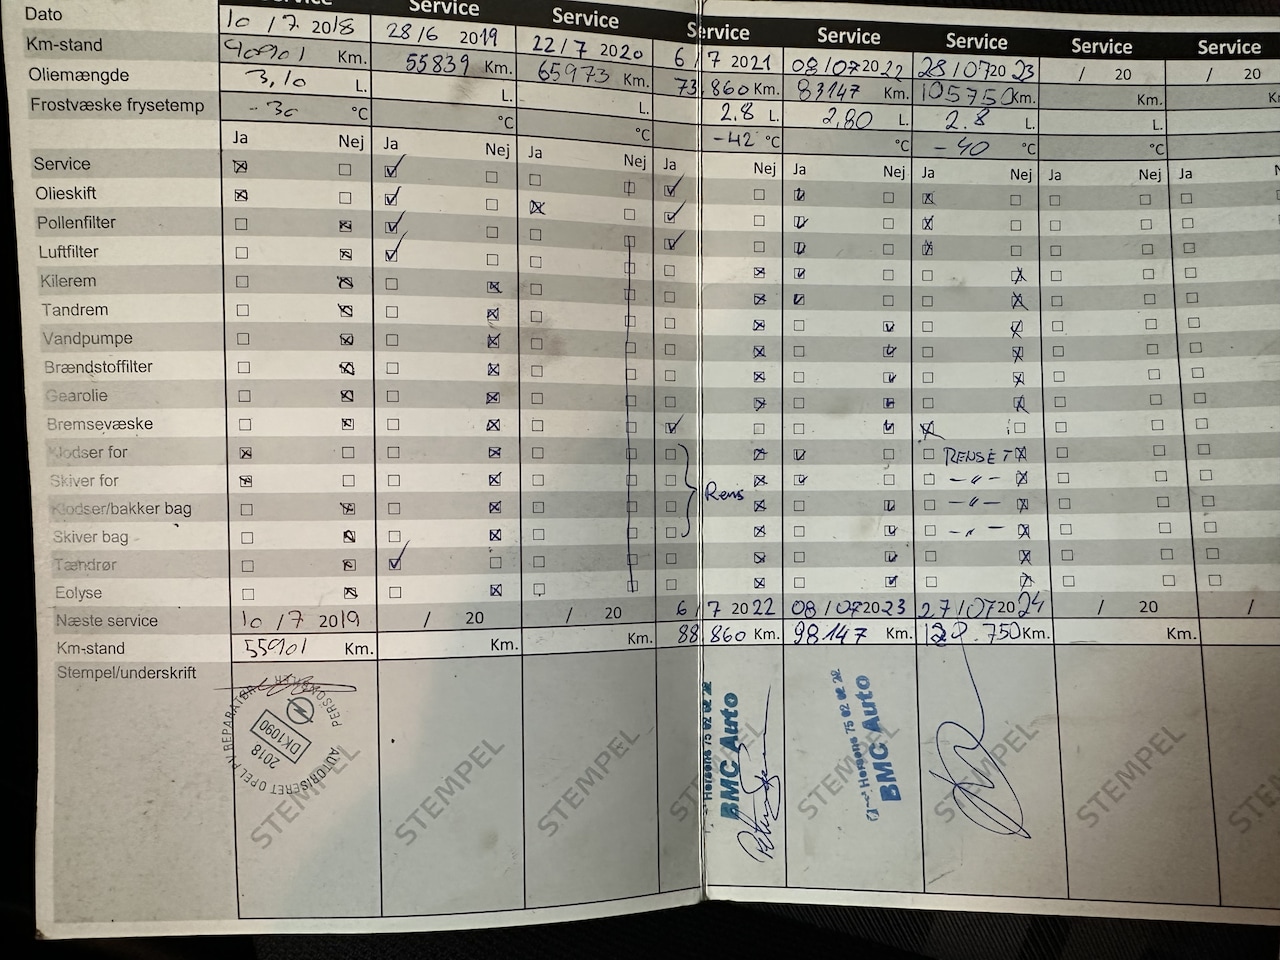 Service Service Service Service Service Service Service
Dato 10/7 2018 28/6 2019 22/7 2020 6/7 2021 08/07 2022 28/07 2023 / 20 / 20
Km-stand 40901 Km. 55839 Km. 65973 Km. 73 860 Km. 83147 Km. 105750 Km. Km.
Oliemængde 3,10 L. L. L. 2.8 L. 2,80 L. 2.8 L. L.
Frostvæske frysetemp -30 °C °C °C -42 °C °C -40 °C °C
Ja Nej Ja Nej Ja Nej Ja Nej Ja Nej Ja Nej Ja Nej Ja
Service
Olieskift
Pollenfilter
Luftfilter
Kilerem
Tandrem
Vandpumpe
Brændstoffilter
Gearolie
Bremsevæske
Klodser for RENSET
Skiver for Rens -"-
Klodser/bakker bag -"-
Skiver bag -"-
Tændrør
Eolyse
Næste service 10/7 2019 / 20 / 20 6/7 2022 08/07 2023 27/07 2024 / 20 /
Km-stand 55901 Km. Km. Km. 88 860 Km. 98147 Km. 120.750 Km. Km.
Stempel/underskrift
AUTORISERET OPEL PV REPARATØR
PERSON
DK1090
2018
STEMPEL
STEMPEL
STEMPEL
STEMPEL
Horsens 75 62 02 22
BMC Auto
STEMPEL
Horsens 75 62 02 22
BMC Auto
STEMPEL
STEMPEL
STEMPEL